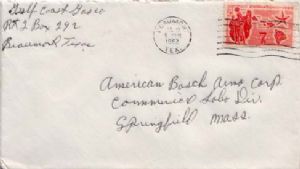 Gulf Coast Gasco
Rt 2 Box 292
Beaumont, Texas
BEAUMONT
TEX.
7¢
American Bosch Arma Corp.
Commercial Sales Div.
Springfield Mass.